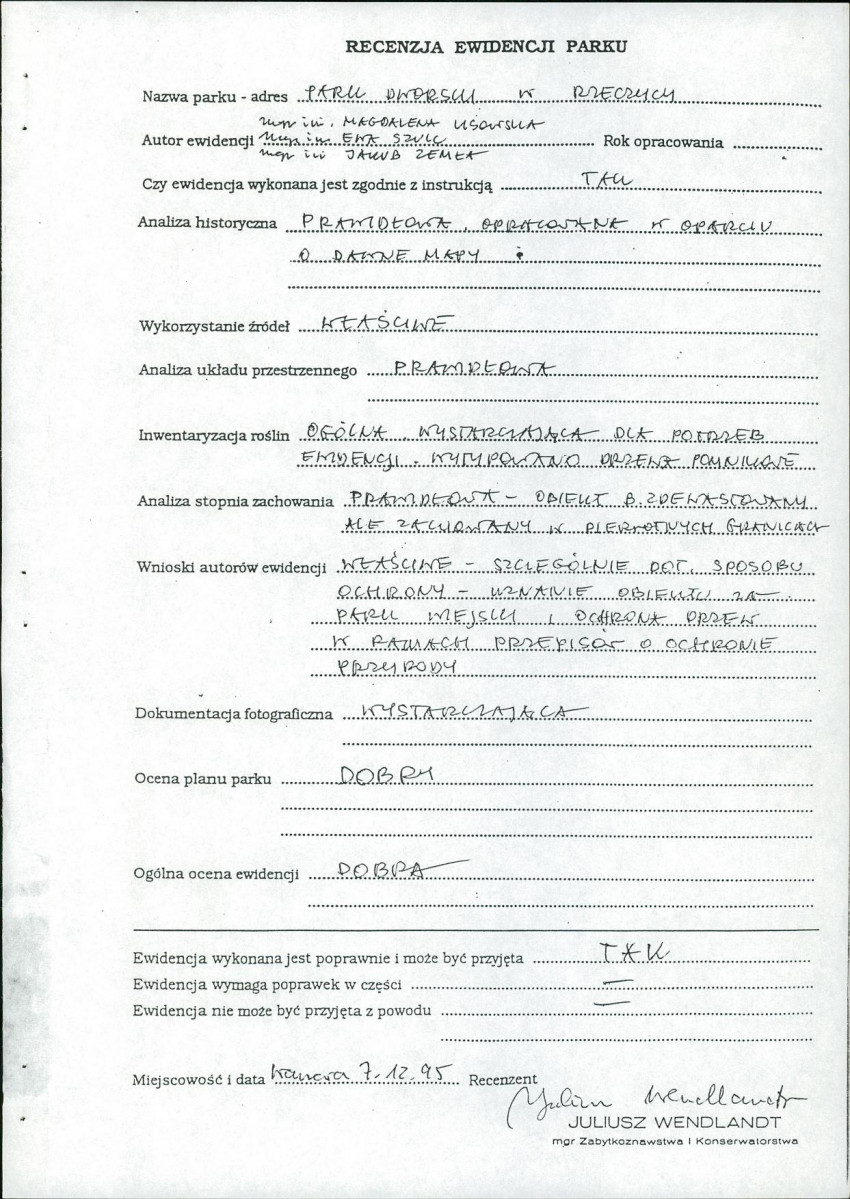 RECENZJA EWIDENCJI PARKU
Nazwa parku - adres PARK DWORSKI W RZECZYCY
mgr inż. MAGDALENA LISOWSKA
Autor ewidencji mgr inż. EWA SZULC Rok opracowania
mgr inż JAKUB ZEMŁA
Czy ewidencja wykonana jest zgodnie z instrukcją TAK
Analiza historyczna PRAWIDŁOWA, OPRACOWANA W OPARCIU
O DAWNE MAPY
Wykorzystanie źródeł WŁAŚCIWE
Analiza układu przestrzennego PRAWIDŁOWA
Inwentaryzacja roślin OGÓLNA, WYSTARCZAJĄCA DLA POTRZEB
EWIDENCJI. WYTYPOWANO DRZEWA POMNIKOWE
Analiza stopnia zachowania PRAWIDŁOWA - OBIEKT B. ZDEWASTOWANY
ALE ZACHOWANY W PIERWOTNYCH GRANICACH
Wnioski autorów ewidencji WŁAŚCIWE - SZCZEGÓLNIE DOT. SPOSOBU
OCHRONY - UZNANIE OBIEKTU ZA
PARK WIEJSKI I OCHRONA DRZEW
W RAMACH PRZEPISÓW O OCHRONIE
PRZYRODY
Dokumentacja fotograficzna WYSTARCZAJĄCA
Ocena planu parku DOBRY
Ogólna ocena ewidencji DOBRA
Ewidencja wykonana jest poprawnie i może być przyjęta TAK
Ewidencja wymaga poprawek w części —
Ewidencja nie może być przyjęta z powodu —
Miejscowość i data 7.12.95 Recenzent
Juliusz Wendlandt
JULIUSZ WENDLANDT
mgr Zabytkoznawstwa i Konserwatorstwa